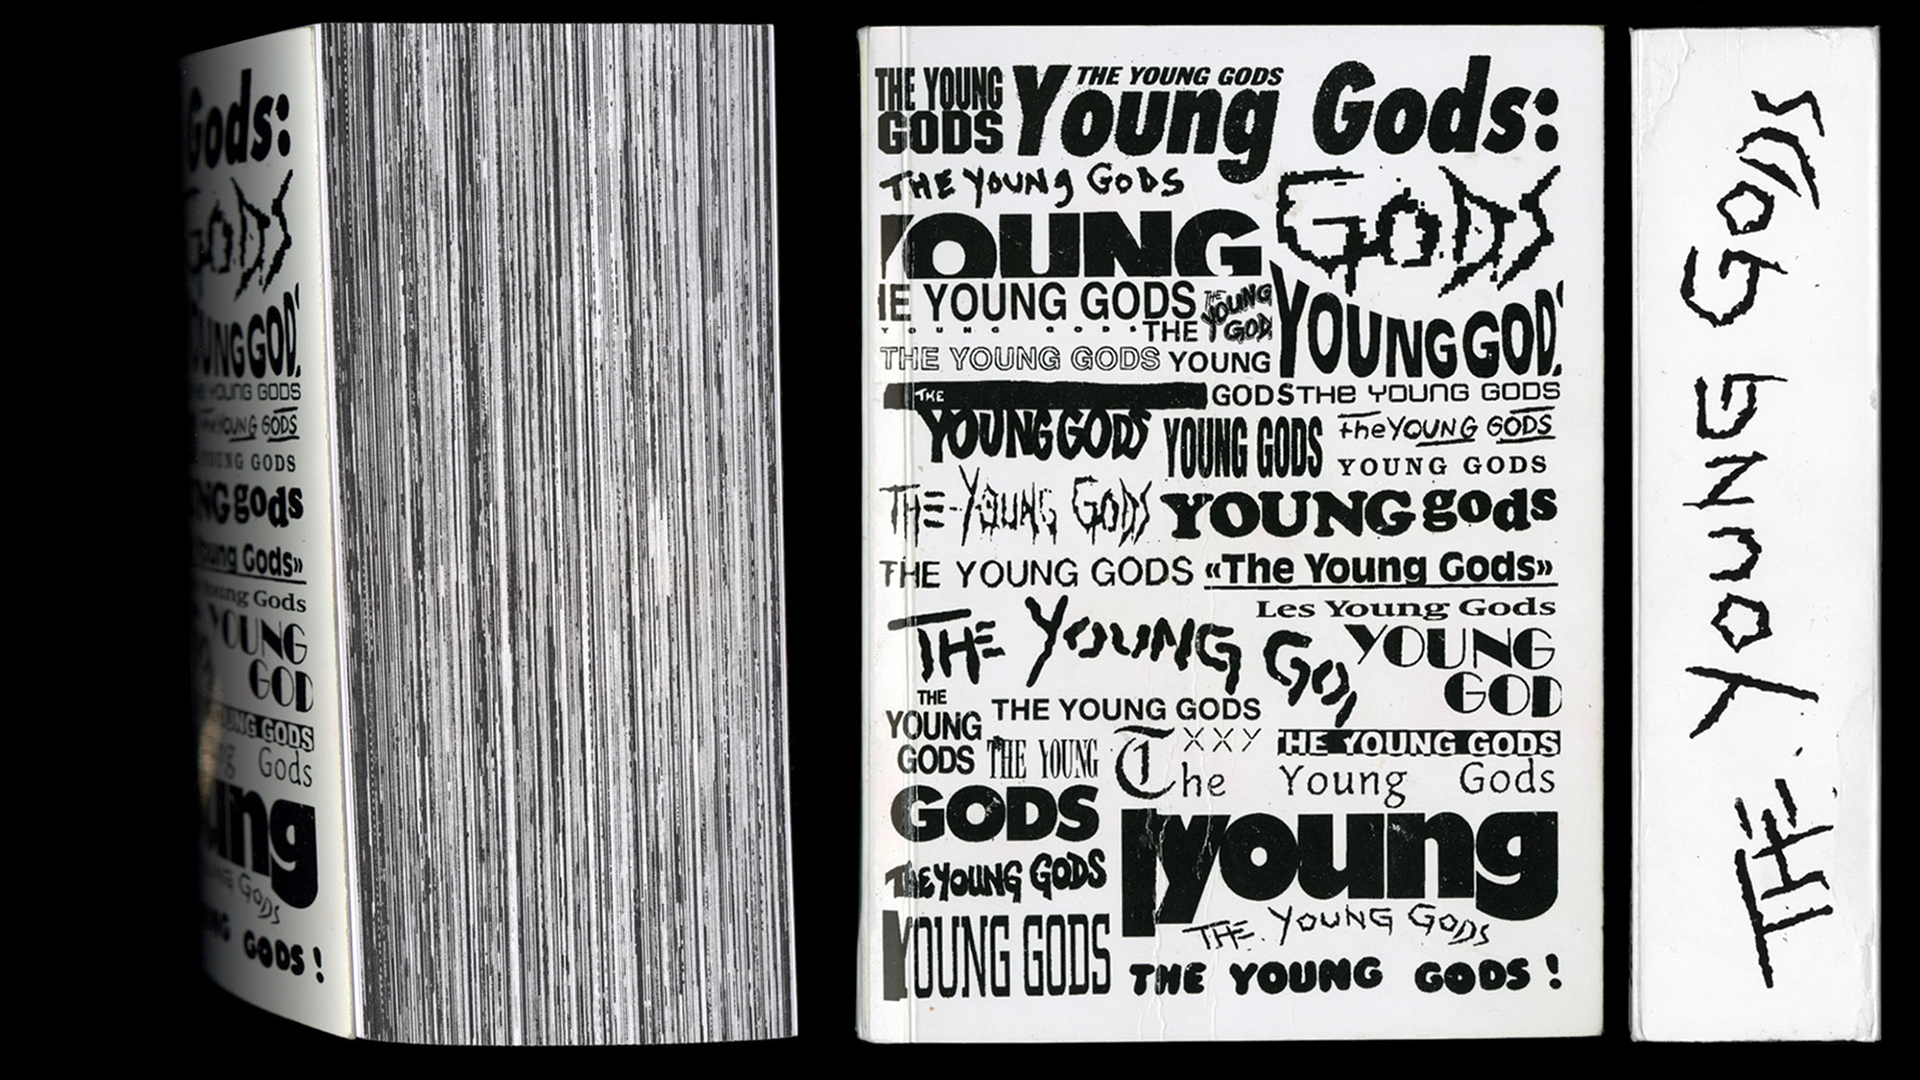 Gods:
GODS
YOUNG GOD
THE YOUNG GODS
the YOUNG GODS
YOUNG GODS
NG gods
Young Gods»
Young Gods
YOUNG
GOD
YOUNG GODS
ng Gods
ung
YOUNG GODS
NG GODS!
THE YOUNG
GODS
THE YOUNG GODS
Young Gods:
THE YOUNG GODS
GODS
OUNG
IE YOUNG GODS
THE YOUNG GOD
YOUNG GOD
YOUNG GODS
THE
THE YOUNG GODS
YOUNG
GODS
THE YOUNG GODS
THE
YOUNG GODS
YOUNG GODS
the YOUNG GODS
YOUNG GODS
THE YOUNG GODS
YOUNG gods
THE YOUNG GODS
«The Young Gods»
Les Young Gods
THE YOUNG GO
YOUNG
GOD
THE
YOUNG
GODS
THE YOUNG GODS
THE YOUNG
GODS
XXY
HE YOUNG GODS
The Young Gods
young
The YOUNG GODS
THE YOUNG GODS
YOUNG GODS
THE YOUNG GODS!
THE YOUNG GODS